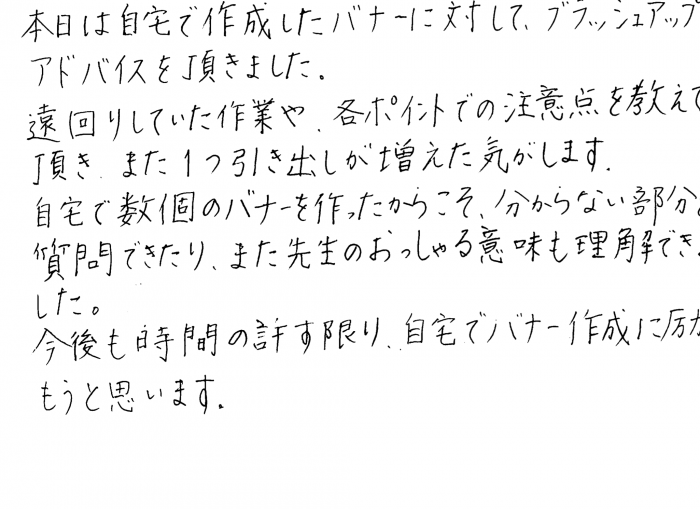 本日は自宅で作成したバナーに対して、ブラッシュアップ
アドバイスを頂きました。
遠回りしていた作業や、各ポイントでの注意点を教えて
頂き、また1つ引き出しが増えた気がします。
自宅で数個のバナーを作ったからこそ、分からない部分
質問できたり、また先生のおっしゃる意味も理解でき
した。
今後も時間の許す限り、自宅でバナー作成に励
もうと思います。